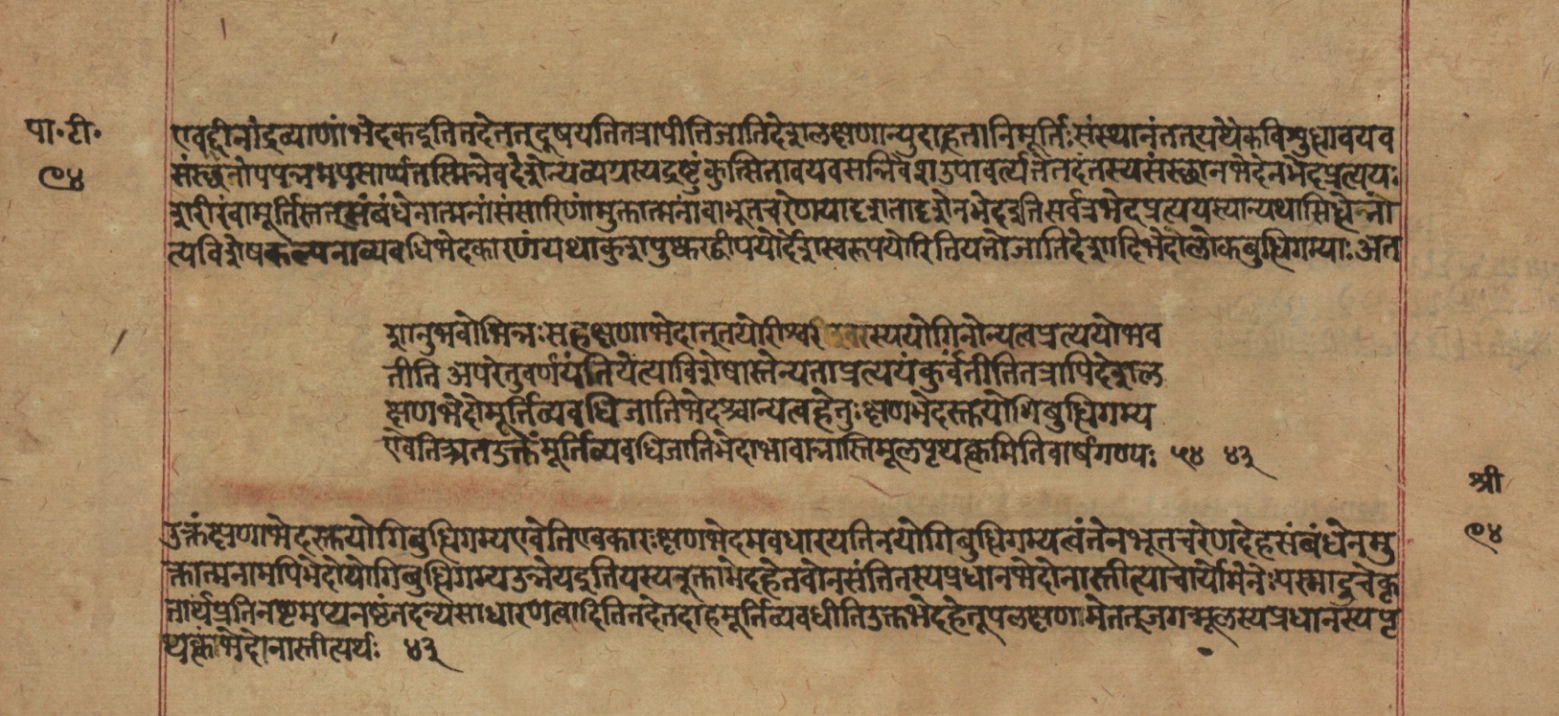 पा॰ टी॰
९४
एवद्दीनांद्रव्याणांभेदकइतितदेतत्दुषयतितत्रापीतिजातिदेशलक्षणान्युदाहृतानिमूर्तिःसंस्थानंततयथैकविशुद्धावयव
संस्छानोपपन्नमपसार्यतस्मिन्नेवदेशेन्यव्यग्रस्यद्रष्टुंकुत्सितावयवसन्निवेशउपावर्त्यतेतदंतस्यसंस्छानभेदेनभेदप्रत्ययः
शरीरंवामूर्तिस्तत्संबंधेनात्मनांसंसारिणांमुक्तात्मनांवाभूतचरेणयादृशतादृशेनभेदइतिसर्वत्रभेदप्रत्ययस्यान्यथासिद्धेर्न्नां
त्यविशेषकल्पनाव्यवधिभेदकारणंयथाकुशपुष्करद्वीपयोर्देशस्वरूपयोरितियतोजातिदेशादिभेदोलोकबुद्धिगम्याःअत
शानुभवोभिन्नःसहक्षणाभेदात्तयोरीश्वरस्ययोगिनोन्यत्वप्रत्ययोभव
तीति अपरेतुवर्णयंतियेंत्याविशेषास्तेन्यताप्रत्ययंकुर्वंतीतितत्रापिदेशल
क्षणभेदोमूर्त्तिव्यवधिजातिभेदश्चान्यत्वहेतुःक्षणभेदस्तुयोगिबुद्धिगम्य
एवेतिअतउक्तंमूर्तिव्यवधिजातिभेदाभावान्नास्तिमूलपृथत्क्वमितिवार्षगण्यः ५४ ४३
श्री
९४
उक्तंक्षणाभेदस्तुयोगिबुद्धिगम्यएवेतिएवकारःक्षणभेदमवधारयतिनयोगिबुद्धिगम्यत्वंतेनभूतचरेणदेहसंबंधेनमु
क्तात्मनामपिभेदोयोगिबुद्धिगम्यउन्नेयइतियस्यतूक्ताभेदहेतवोनसंतितस्यप्रधानभेदोनास्तीत्याचार्योमेनेःयस्मादुचेकृ
तार्थंप्रतिनष्टमप्यनष्टंतदन्यसाधारणत्वादितितदेतदाहमूर्तिव्यवधीतिउक्तभेदहेतूपलक्षणमेतत्जगन्मूलस्यप्रधानस्यपृ
थत्क्वंभेदोनास्तीत्यर्थः ४३